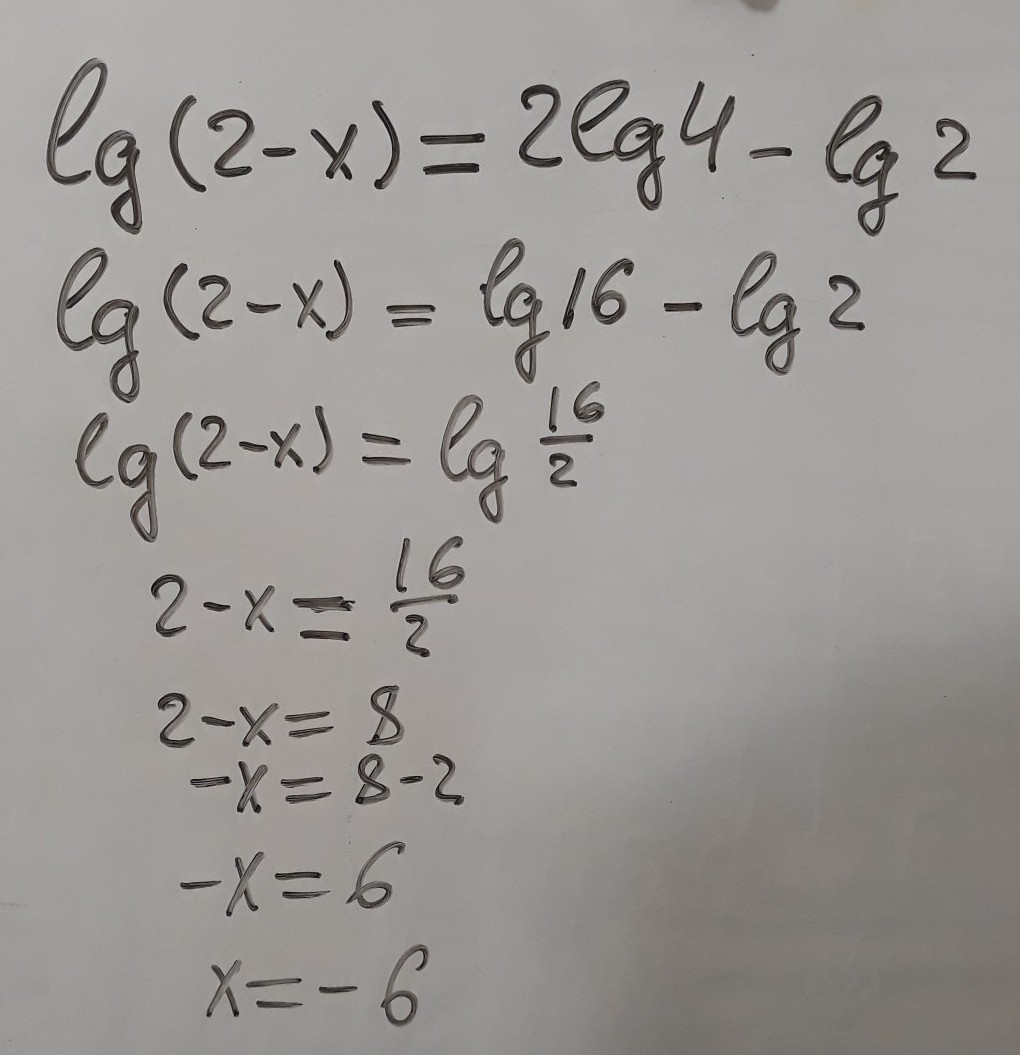 lg(2-x)=2lg4-lg2
lg(2-x)=lg16-lg2
lg(2-x)=lg 16/2
2-x=16/2
2-x=8
-x=8-2
-x=6
x=-6